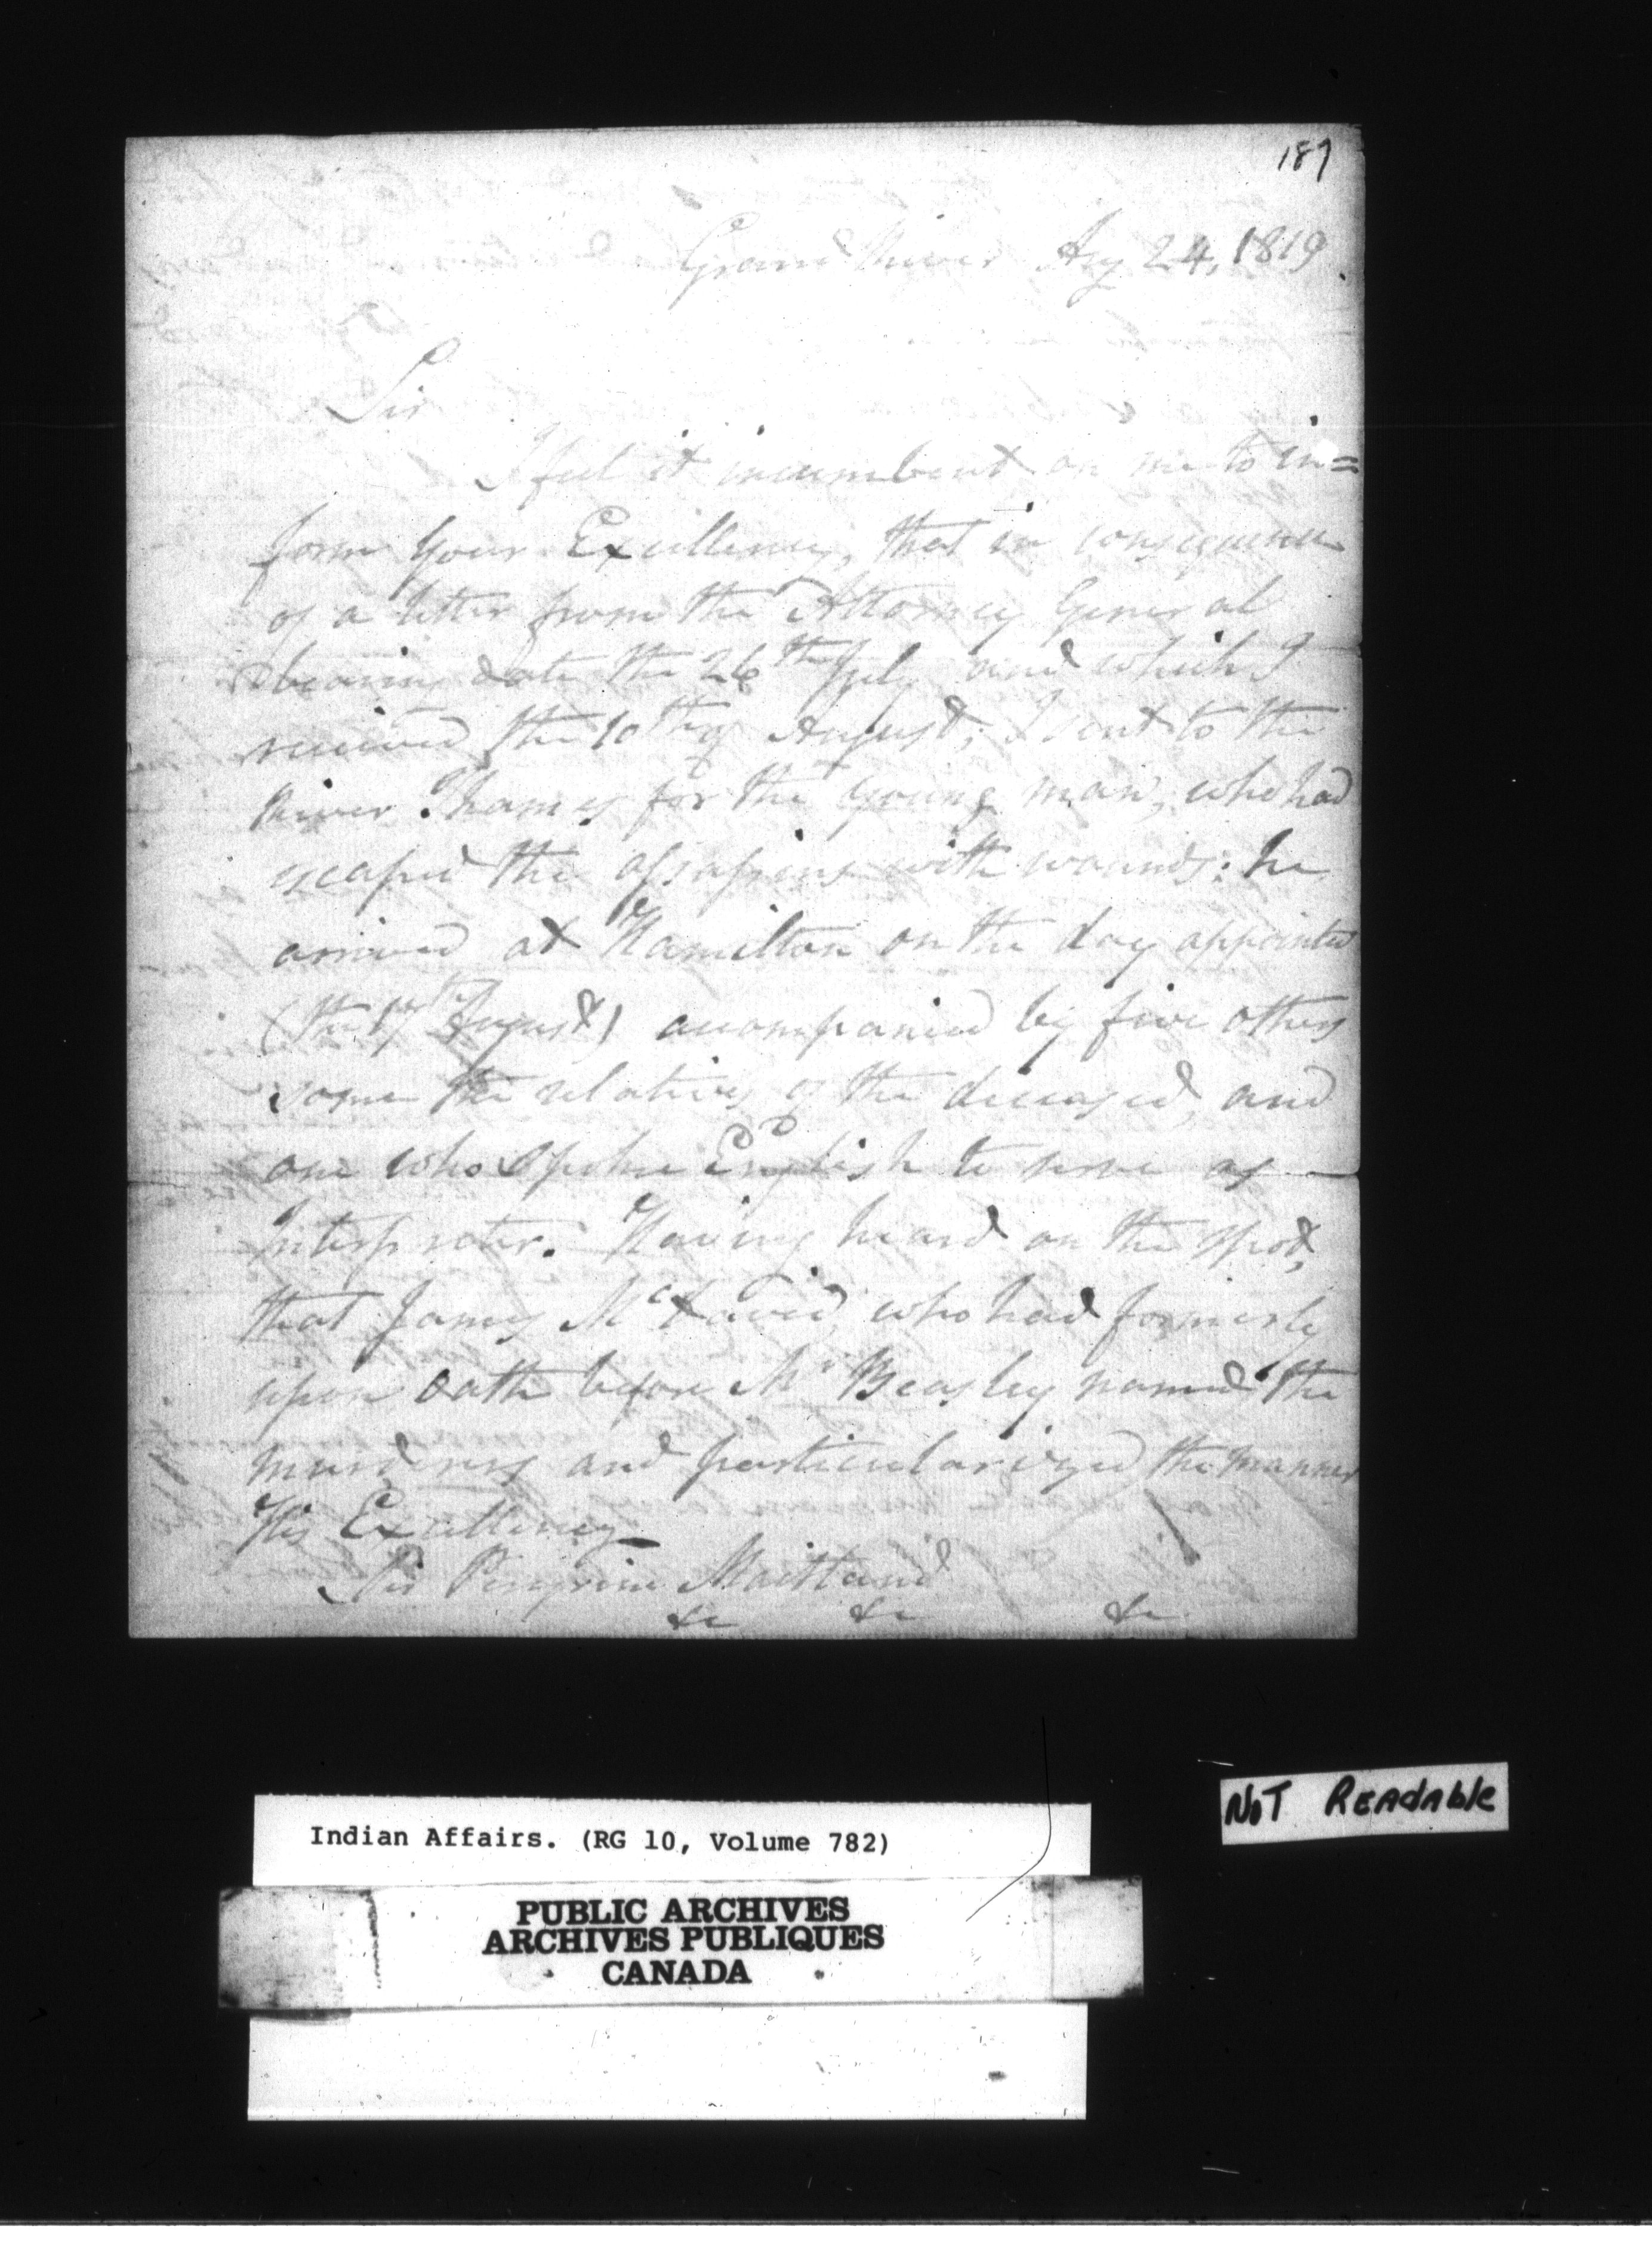 187
Grand River Aug 24, 1819
Sir
I feel it incumbent on me to in=
form Your Excellency, that in consequence
of a letter from the Attorney General
bearing date the 26th July and which I
received the 10th of August; I sent to the
River Thames for the young man, who had
escaped the assassins with wounds: he
arrived at Hamilton on the day appointed
(the 17th August) accompanied by five others
some the relatives of the deceased, and
one who spoke English to serve as
Interpreter. Having heard on the spot,
that James McDavid, who had formerly
upon oath before Mr Beasley named the
murderers and particularized the manner
His Excellency
Sir Peregrine Maitland
&c &c &c
NOT READABLE
Indian Affairs. (RG 10, Volume 782)
PUBLIC ARCHIVES
ARCHIVES PUBLIQUES
CANADA